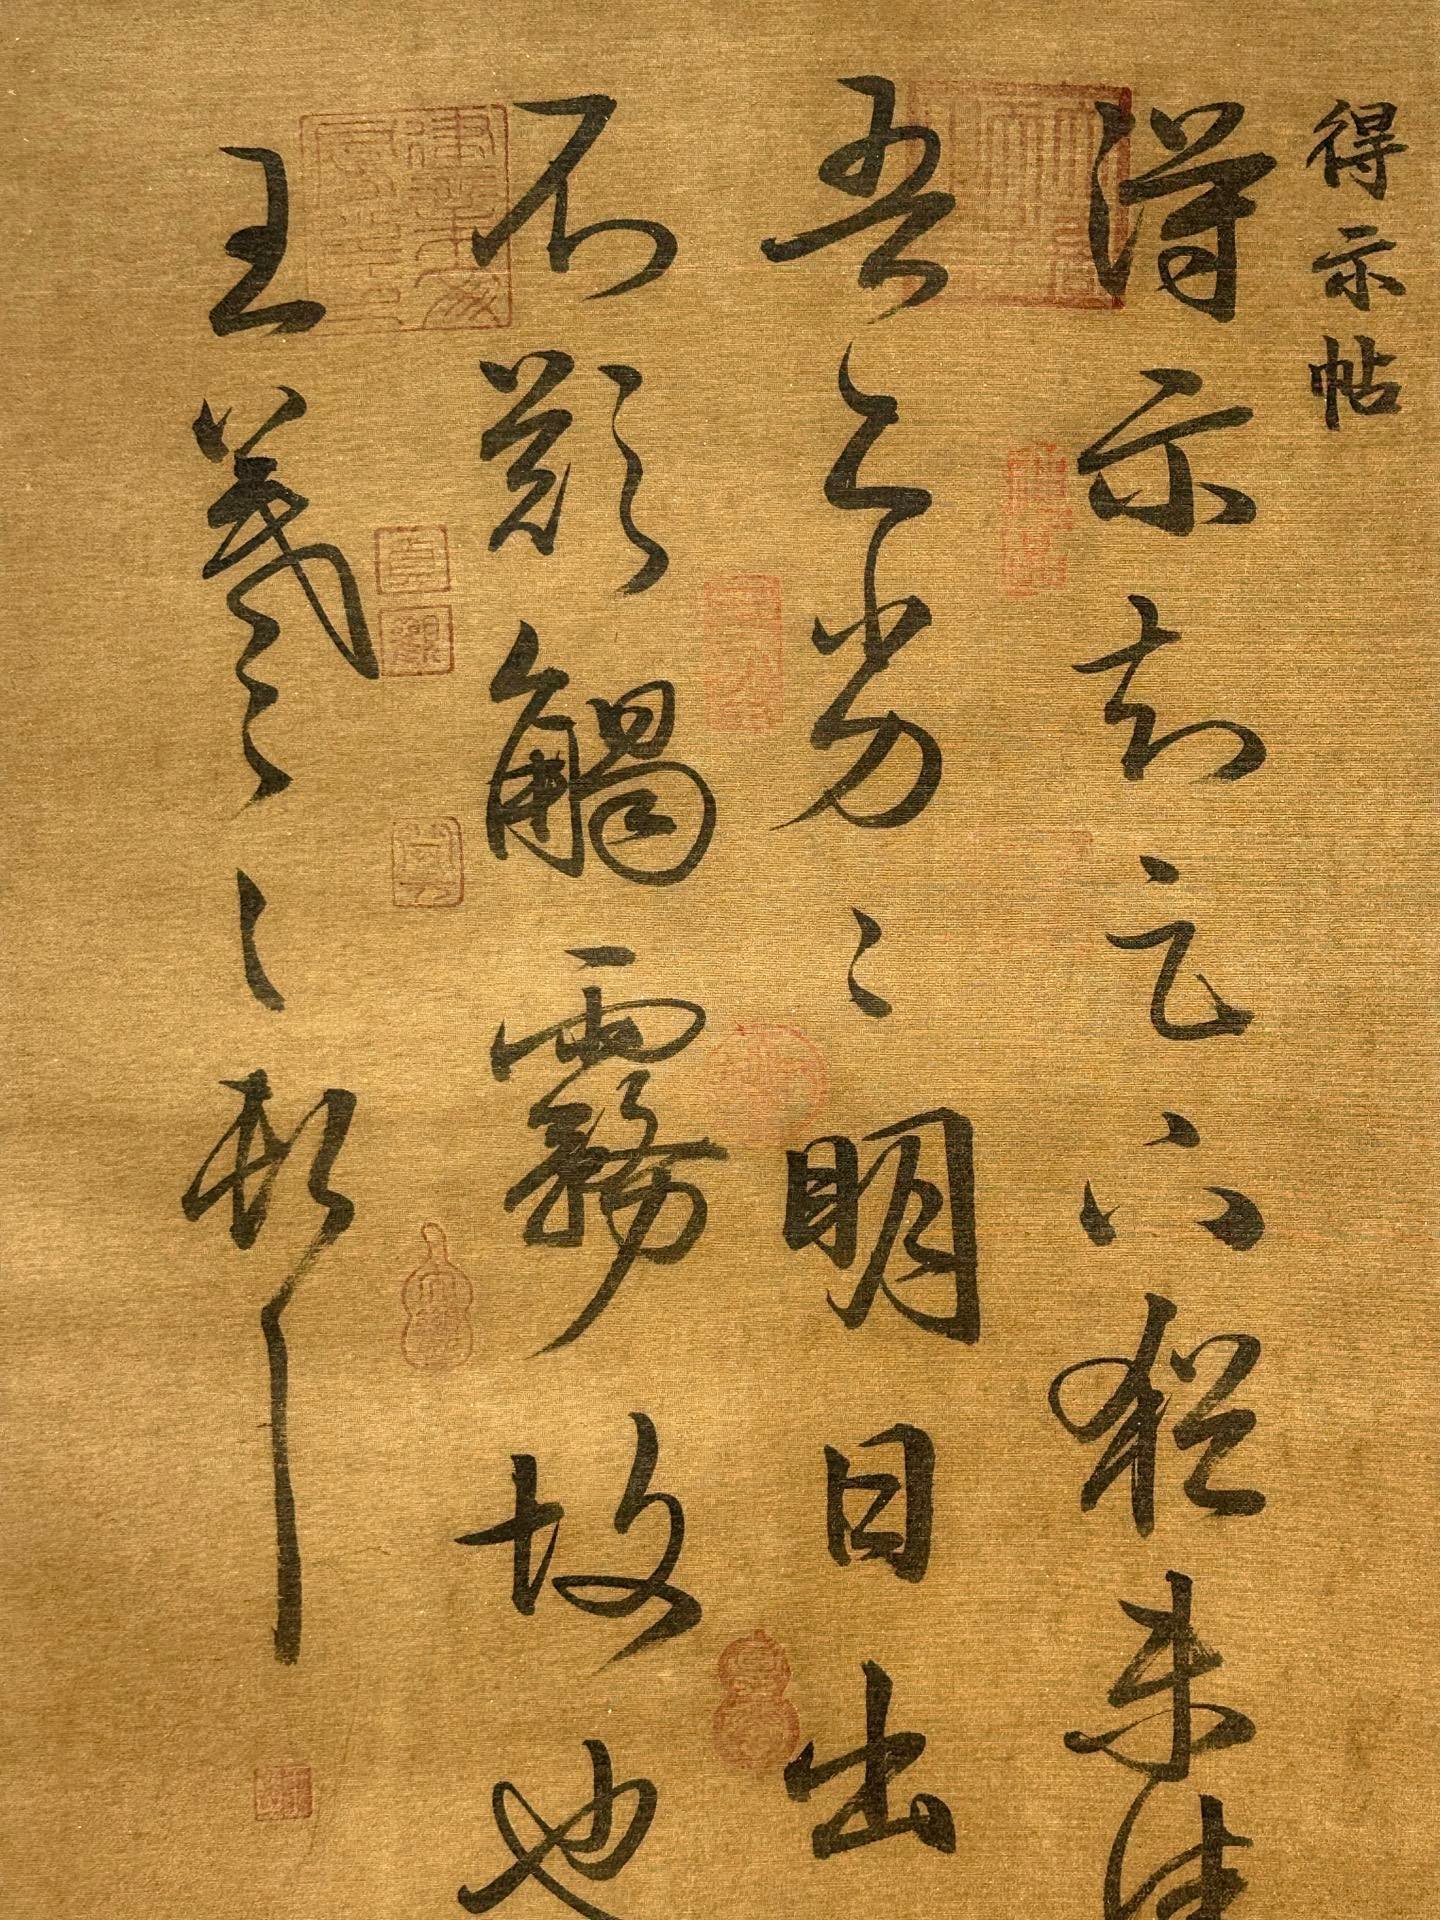 得示帖
得示知足下猶未佳
吾亦劣劣明日出
不欲觸霧故也
王羲之頓